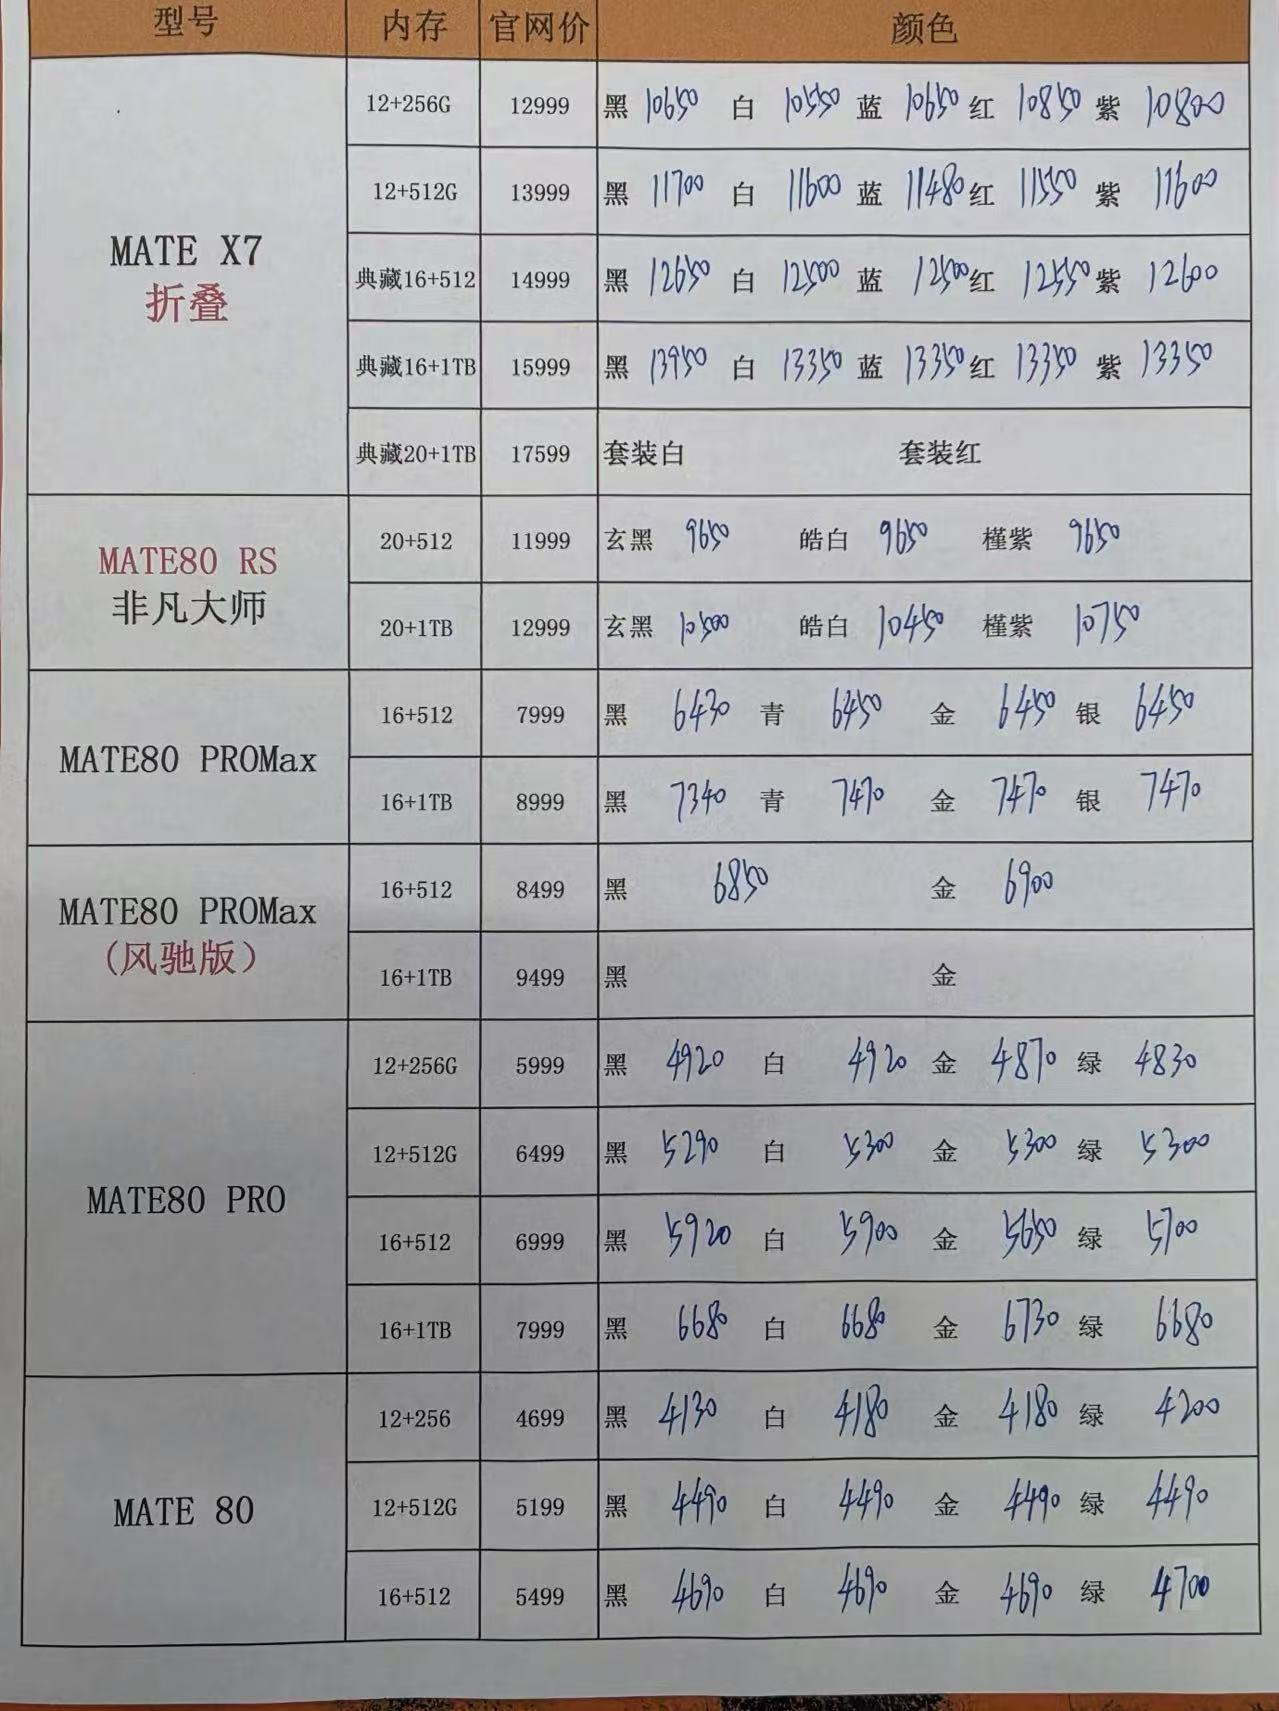 型号 内存 官网价 颜色
MATE X7
折叠
12+256G 12999 黑 10650 白 10550 蓝 10650 红 10850 紫 10800
12+512G 13999 黑 11700 白 11600 蓝 11480 红 11550 紫 11600
典藏16+512 14999 黑 12650 白 12500 蓝 12500 红 12550 紫 12600
典藏16+1TB 15999 黑 13950 白 13350 蓝 13350 红 13350 紫 13350
典藏20+1TB 17599 套装白 套装红
MATE80 RS
非凡大师
20+512 11999 玄黑 9650 皓白 9650 槿紫 9650
20+1TB 12999 玄黑 10500 皓白 10450 槿紫 10750
MATE80 PROMax
16+512 7999 黑 6430 青 6450 金 6450 银 6450
16+1TB 8999 黑 7340 青 7470 金 7470 银 7470
MATE80 PROMax
(风驰版)
16+512 8499 黑 6850 金 6900
16+1TB 9499 黑 金
MATE80 PRO
12+256G 5999 黑 4920 白 4920 金 4870 绿 4830
12+512G 6499 黑 5290 白 5300 金 5300 绿 5300
16+512 6999 黑 5920 白 5900 金 5650 绿 5700
16+1TB 7999 黑 6680 白 6680 金 6730 绿 6680
MATE 80
12+256 4699 黑 4130 白 4180 金 4180 绿 4200
12+512G 5199 黑 4490 白 4490 金 4490 绿 4490
16+512 5499 黑 4690 白 4690 金 4690 绿 4700